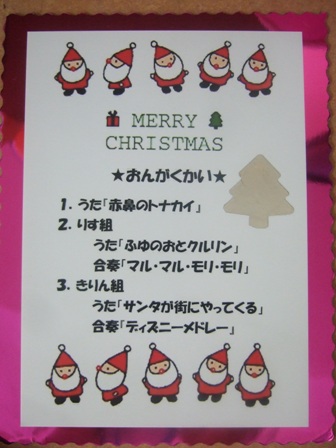 MERRY
CHRISTMAS
★おんがくかい★
1. うた「赤鼻のトナカイ」
2. りす組
うた「ふゆのおとクルリン」
合奏「マル・マル・モリ・モリ」
3. きりん組
うた「サンタが街にやってくる」
合奏「ディズニーメドレー」